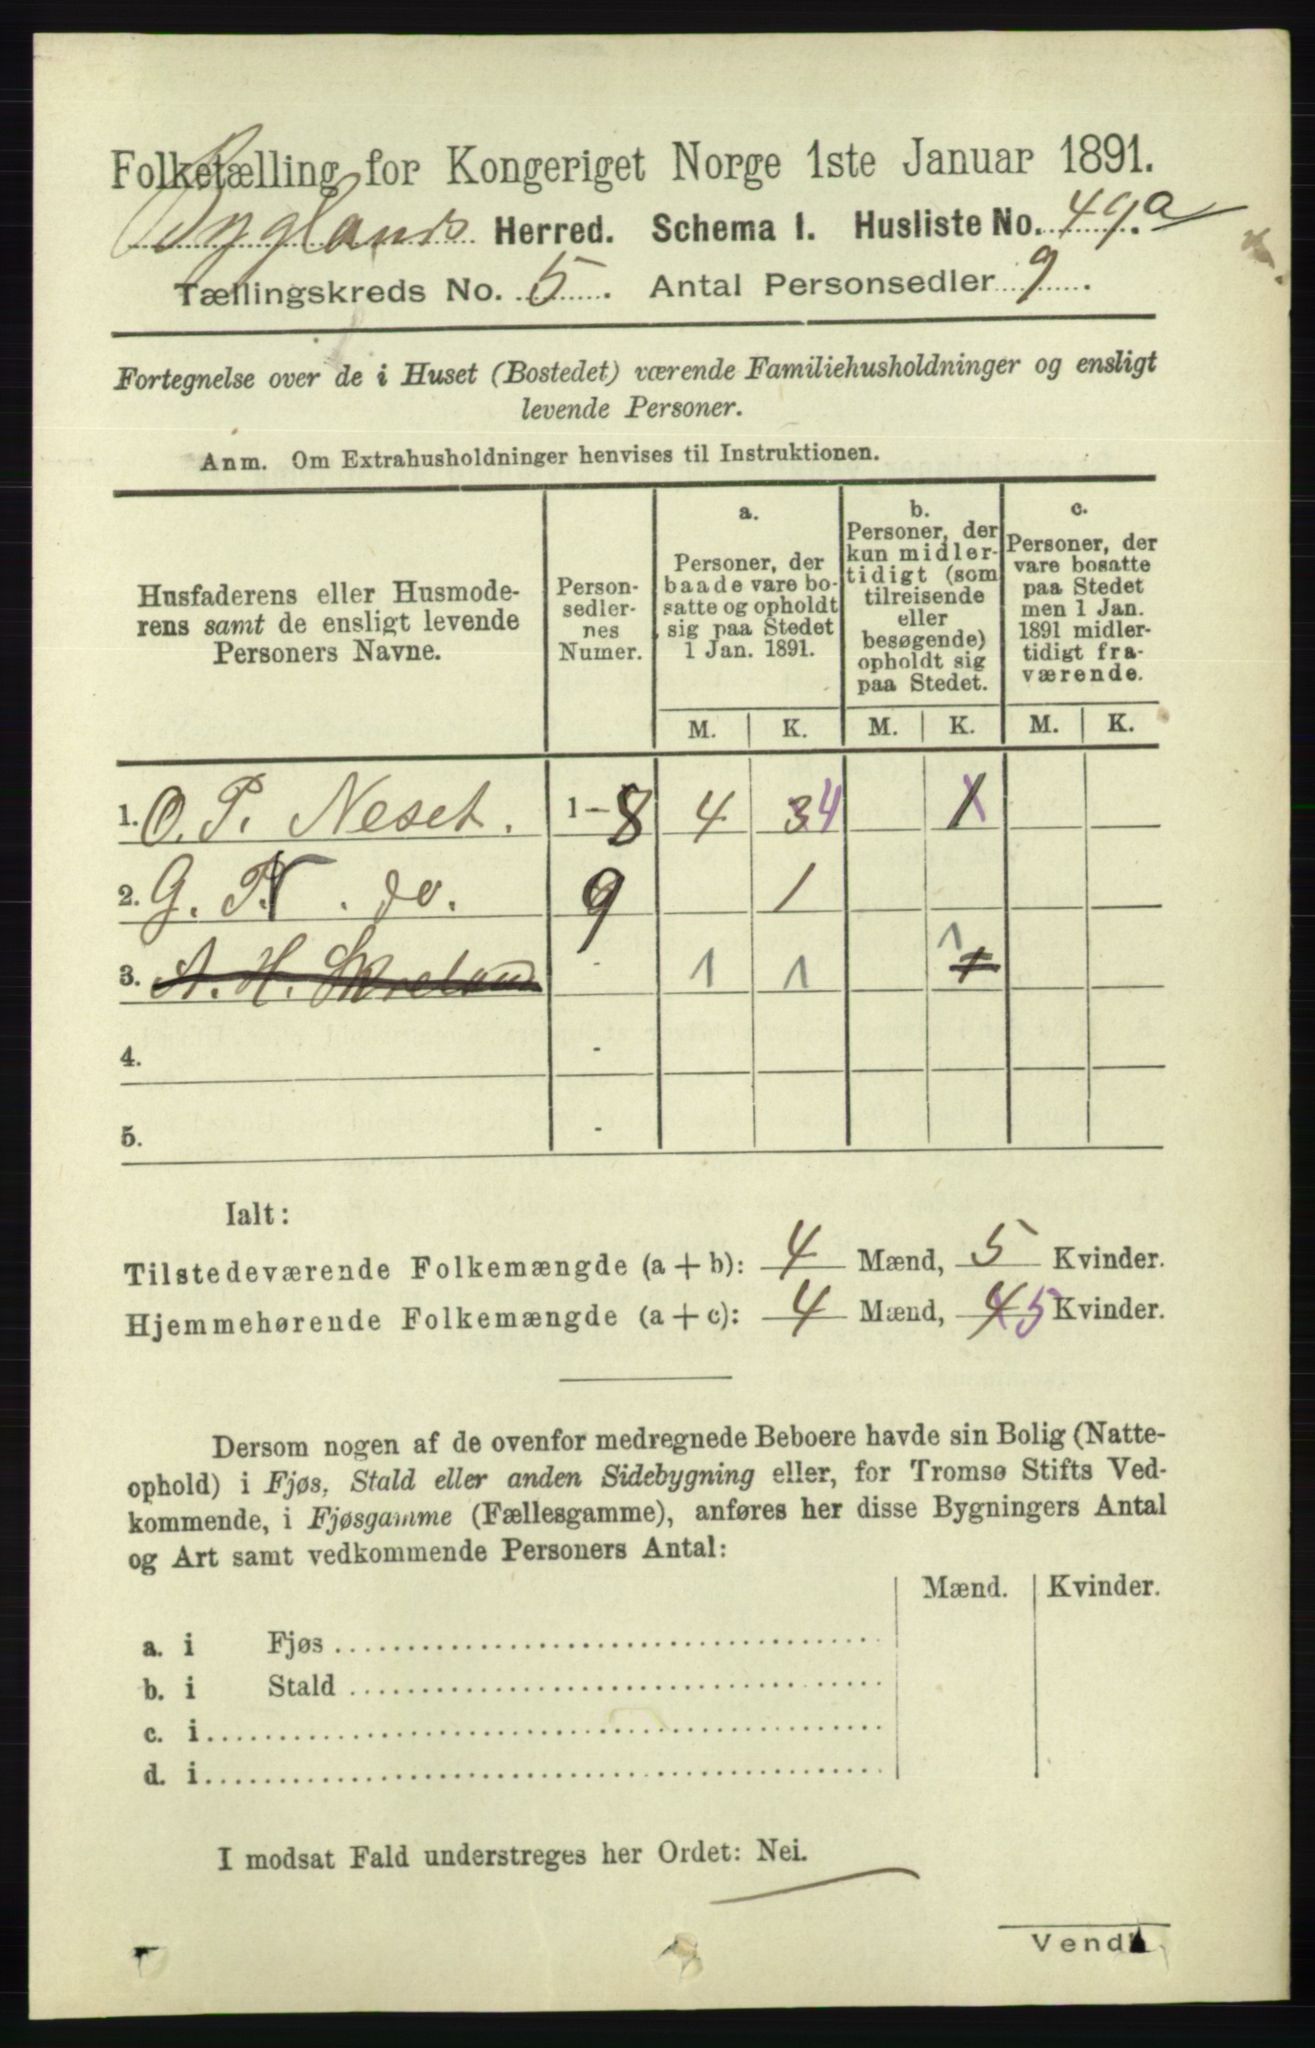 Folketælling for Kongeriget Norge 1ste Januar 1891.
Byglands Herred. Schema 1. Husliste No. 49a
Tællingskreds No. 5. Antal Personsedler 9.
Fortegnelse over de i Huset (Bostedet) værende Familiehusholdninger og ensligt
levende Personer.
Anm. Om Extrahusholdninger henvises til Instruktionen.
Husfaderens eller Husmode-
rens samt de ensligt levende
Personers Navne.
Person-
sedler-
nes
Numer.
a.
Personer, der
baade vare bo-
satte og opholdt
sig paa Stedet
1 Jan. 1891.
b.
Personer, der
kun midler-
tidigt (som
tilreisende
eller
besøgende)
opholdt sig
paa Stedet.
c.
Personer, der
vare bosatte
paa Stedet
men 1 Jan.
1891 midler-
tidigt fra-
værende.
M. K. M. K. M. K.
1. O. P. Neset. 1-8 4 3 4 1
2. G. N. do. 9 1
3. A. H. Skreland - 1 1 1 1
4. -
5. -
Ialt:
Tilstedeværende Folkemængde (a + b): 4 Mænd, 5 Kvinder.
Hjemmehørende Folkemængde (a + c): 4 Mænd, 4 5 Kvinder.
Dersom nogen af de ovenfor medregnede Beboere havde sin Bolig (Natte-
ophold) i Fjøs, Stald eller anden Sidebygning eller, for Tromsø Stifts Ved-
kommende, i Fjøsgamme (Fællesgamme), anføres her disse Bygningers Antal
og Art samt vedkommende Personers Antal:
Mænd. Kvinder.
a. i Fjøs
b. i Stald
c. i
d. i
I modsat Fald understreges her Ordet: Nei.
Vend!